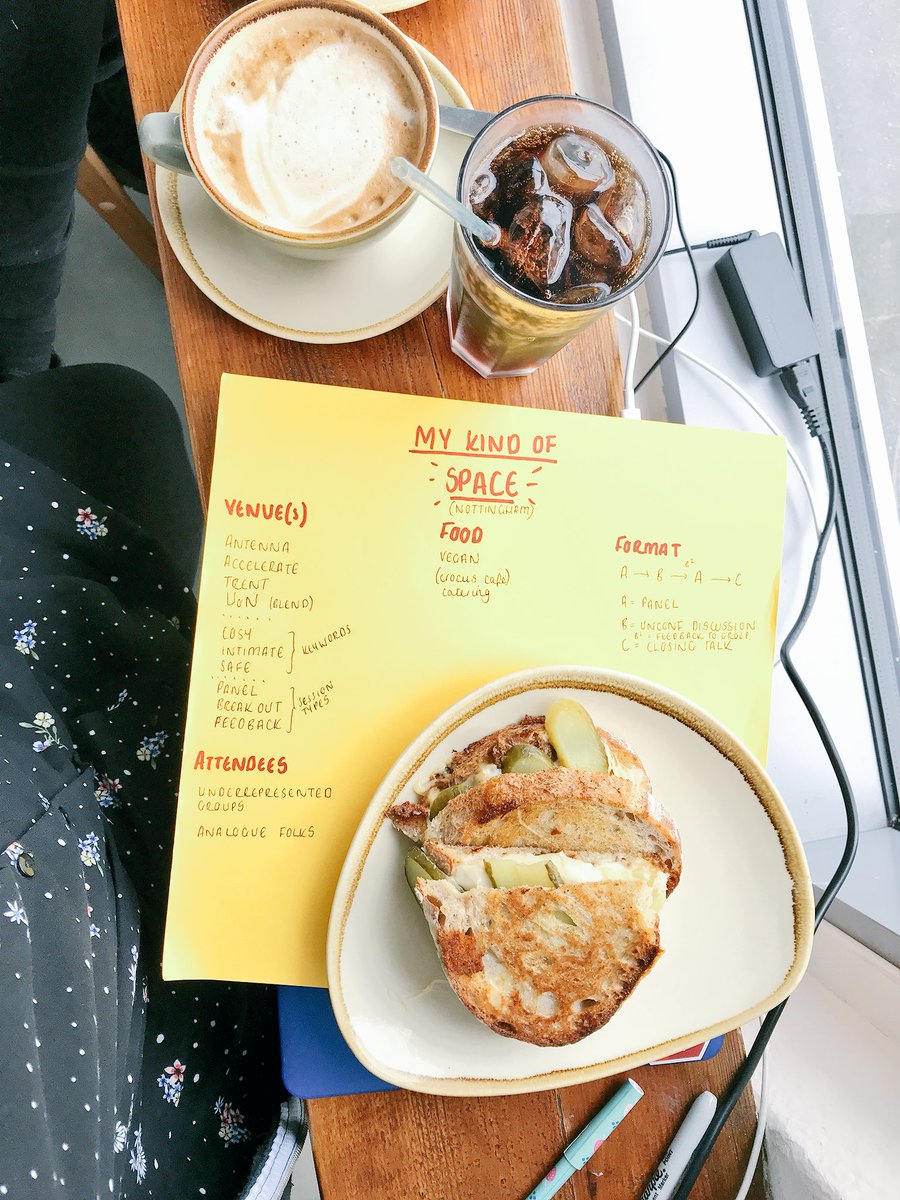 MY KIND OF
SPACE
(NOTTINGHAM)
VENUE(S)
ANTENNA
ACCELERATE
TRENT
UON (BLEND)
......
COSY
INTIMATE
SAFE
KEYWORDS
.......
PANEL
BREAKOUT
FEEDBACK
SESSION
TYPES
ATTENDEES
UNDERREPRESENTED
GROUPS
ANALOGUE FOLKS
FOOD
VEGAN
(crocus cafe)
catering
FORMAT
A → B → B² A → C
A = PANEL
B = UNCONF DISCUSSION
B² = FEEDBACK TO GROUP
C = CLOSING TALK
Sharpie